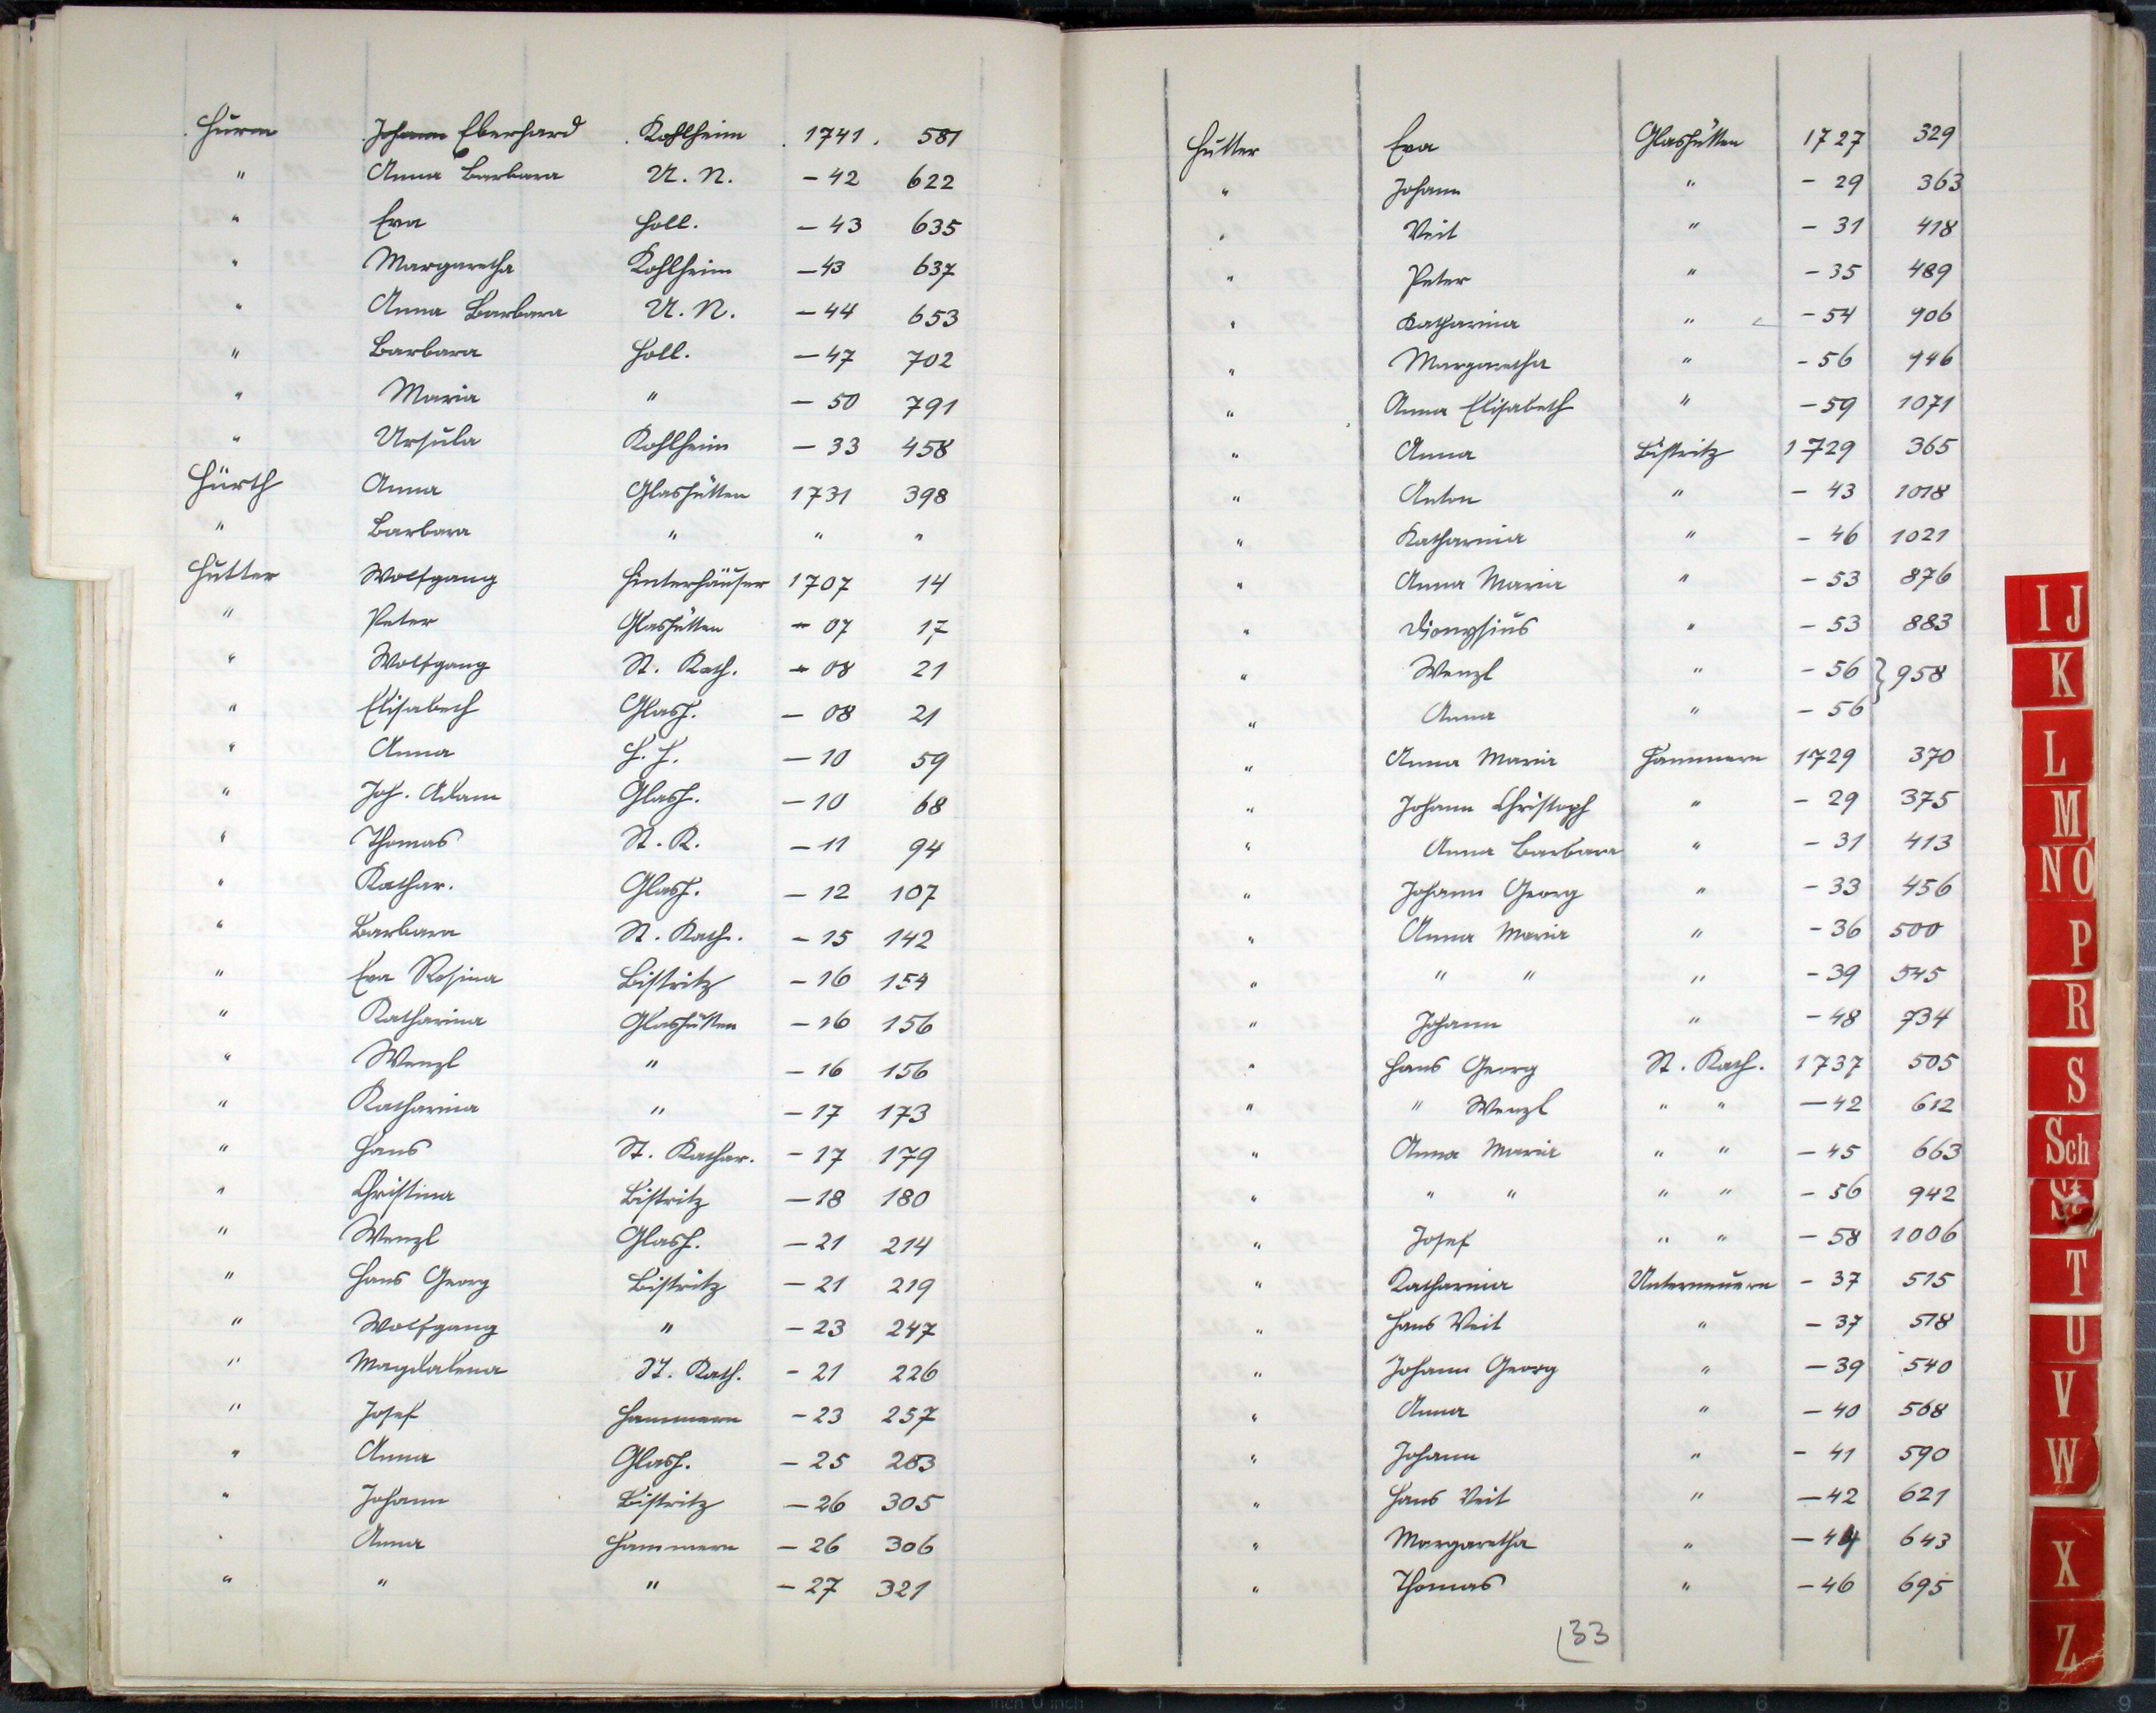 Hurm Johann Eberhard Kohlheim 1741. 581
" Anna Barbara U. N. - 42 622
" Eva Holl. - 43 635
" Margaretha Kohlheim - 43 637
" Anna Barbara U. N. - 44 653
" Barbara Holl. - 47 702
" Maria " - 50 791
" Ursula Kohlheim - 33 458
Hürth Anna Glashütten 1731 398
" Barbara " " "
Hutter Wolfgang Hinterhäuser 1707 14
" Peter Glashütten - 07 17
" Wolfgang St. Kath. - 08 21
" Elisabeth Glash. - 08 21
" Anna H. H. - 10 59
" Joh. Adam Glash. - 10 68
" Thomas St. K. - 11 94
" Kathar. Glash. - 12 107
" Barbara St. Kath. - 15 142
" Eva Rosina Bistritz - 16 154
" Katharina Glashütten - 16 156
" Wenzl " - 16 156
" Katharina " - 17 173
" Hans St. Kathar. - 17 179
" Christina Bistritz - 18 180
" Wenzl Glash. - 21 214
" Hans Georg Bistritz - 21 219
" Wolfgang " - 23 247
" Magdalena St. Kath. - 21 226
" Josef Hammern - 23 257
" Anna Glash. - 25 283
" Johann Bistritz - 26 305
" Anna Hammern - 26 306
" " " - 27 321
Hutter Eva Glashütten 1727 329
" Johann " - 29 363
" Veit " - 31 418
" Peter " - 35 489
" Katharina " - 54 906
" Margaretha " - 56 946
" Anna Elisabeth " - 59 1071
" Anna Bistritz 1729 365
" Anton " - 43 1018
" Katharina " - 46 1021
" Anna Maria " - 53 876
" Dionysius " - 53 883
" Wenzl " - 56 } 958
" Anna " - 56
" Anna Maria Hammern 1729 370
" Johann Christoph " - 29 375
" Anna Barbara " - 31 413
" Johann Georg " - 33 456
" Anna Maria " - 36 500
" " " " - 39 545
" Johann " - 48 734
" Hans Georg St. Kath. 1737 505
" " Wenzl " " - 42 612
" Anna Maria " " - 45 663
" " " " " - 56 942
" Josef " " - 58 1006
" Katharina Unterneuern - 37 515
" Hans Veit " - 37 518
" Johann Georg " - 39 540
" Anna " - 40 568
" Johann " - 41 590
" Hans Veit " - 42 621
" Margaretha " - 44 643
" Thomas " - 46 695
33
I J
K
L
M
N O
P
R
S
Sch
St
T
U
V
W
X
Z